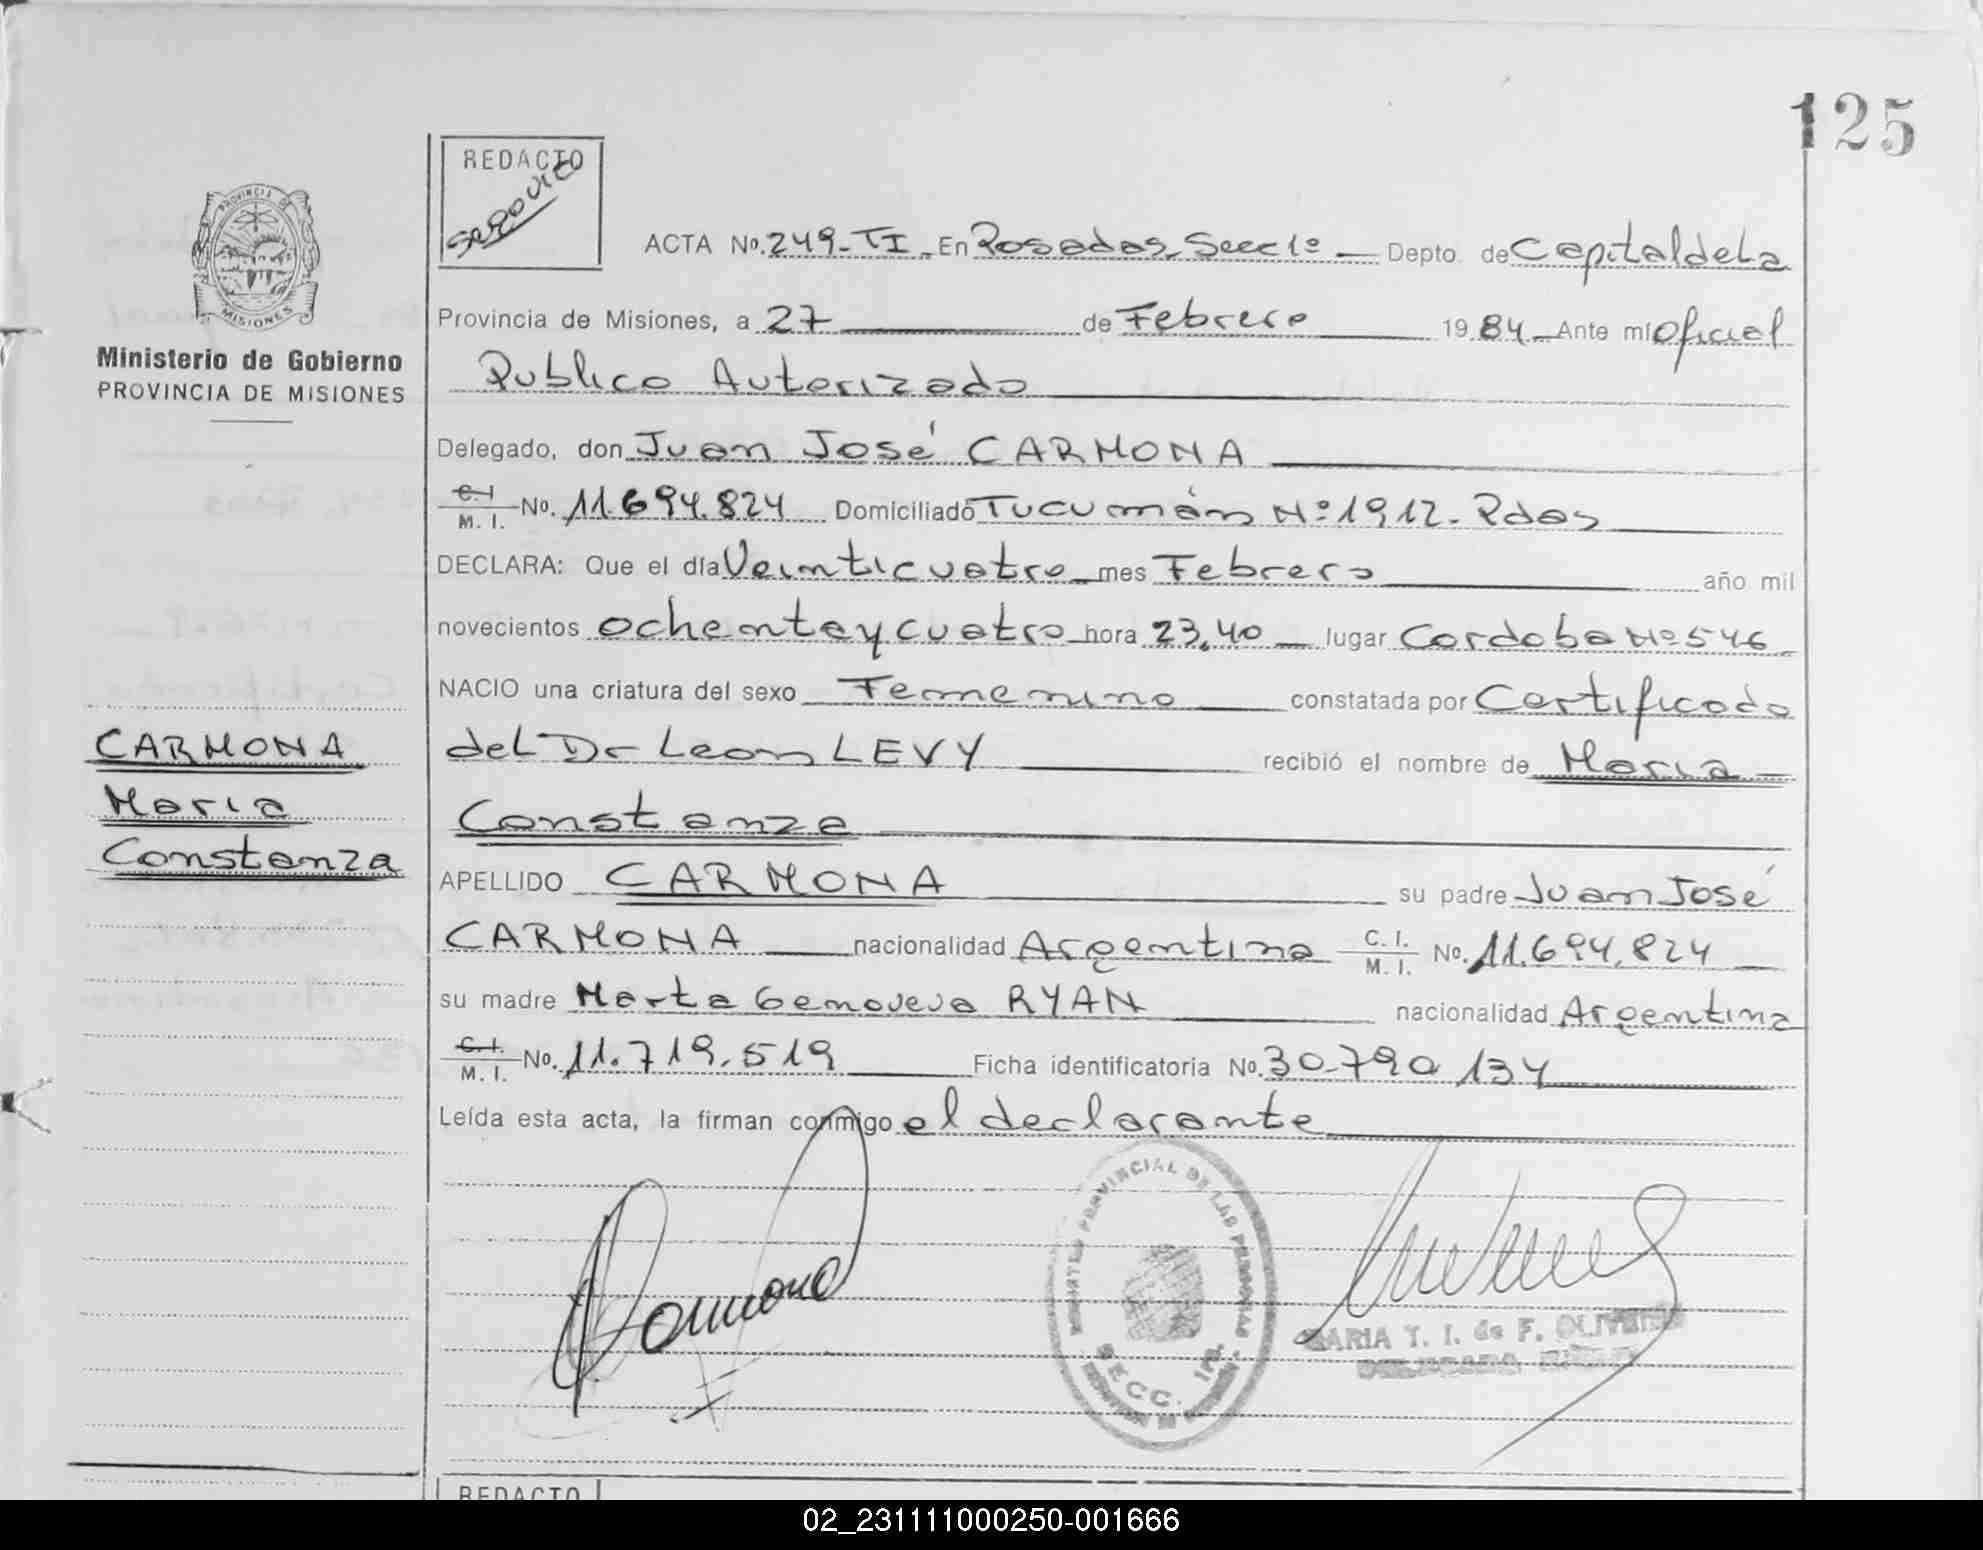 125
REDACTO
PROVINCIA DE
MISIONES
ACTA No. 249-TI - En Posadas, Secc 1º - Depto. de Capital de La
Provincia de Misiones, a 27 de Febrero 1984 - Ante mí Oficial
Ministerio de Gobierno
PROVINCIA DE MISIONES
Publico Autorizado
Delegado, don Juan José CARMONA
C. I. M. I. No. 11.694.824 Domiciliado Tucumán Nº 1912. Pdas
DECLARA: Que el día Veinticuatro mes Febrero año mil
novecientos ochenta y cuatro hora 23,40 lugar Cordoba Nº 546
NACIO una criatura del sexo Femenino constatada por Certificado
del Dr Leon LEVY recibió el nombre de Maria
Constanza
CARMONA
Maria
Constanza
APELLIDO CARMONA su padre Juan José
CARMONA nacionalidad Argentina C. I. M. I. No. 11.694.824
su madre Marta Genoveva RYAN nacionalidad Argentina
C. I. M. I. No. 11.719.519 Ficha identificatoria No. 30.790.134
Leída esta acta, la firman conmigo el declarante
Carmona
PROVINCIAL DE LAS PERSONAS
SECC. 1RA.
MARIA T. I. de F. OLIVEIRA
REDACTO
02_231111000250-001666